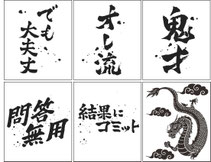 でも
大丈夫
オレ流
鬼才
問答
無用
結果に
コミット